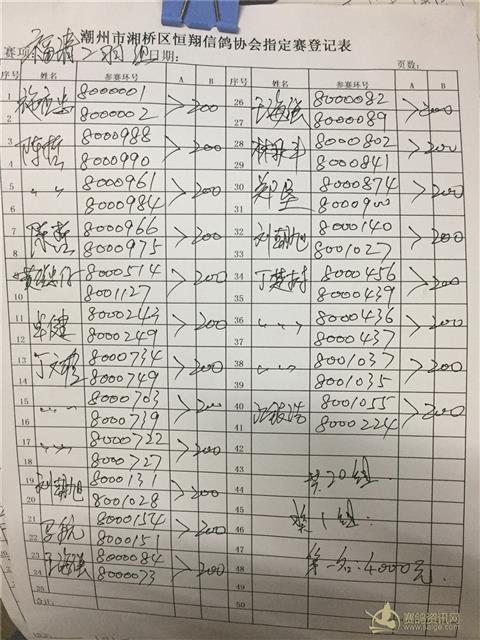 潮州市湘桥区恒翔信鸽协会指定赛登记表
赛项: 福清 二羽组 日期: 页数:
序号 姓名 参赛环号 A B 序号 姓名 参赛环号 A B
1 8000001 >200 26 王海强 8000082 >200
2 8000002 27 8000089
3 陈哲 8000988 >200 28 8000802 >200
4 8000990 29 8000841
5 〃 〃 8000961 >200 30 郑坚 8000874 >200
6 8000984 31 8000900
7 陈哲 8000966 >200 32 刘朝旭 8000140 >200
8 8000975 33 8001027
8000514 >200 34 丁楚村 8000456 >200
10 8001127 35 8000439
11 8000243 >200 36 〃 〃 8000436 >200
12 8000249 37 8000437
13 8000734 >200 38 〃 〃 8001037 >200
14 8000749 39 8001035
15 〃 〃 8000703 >200 40 8001055 >200
16 8000739 41 8000224
17 〃 〃 8000722 >200 42
18 8000727 43
19 刘朝旭 8000131 >200 44 共20组
20 8001028 45
21 8000154 >200 46 奖1组
22 8000151 47
23 王海强 8000084 >200 48 第一名:4000元
24 8000073 49
25 50
合计:
赛鸽资讯网
www.saige.com